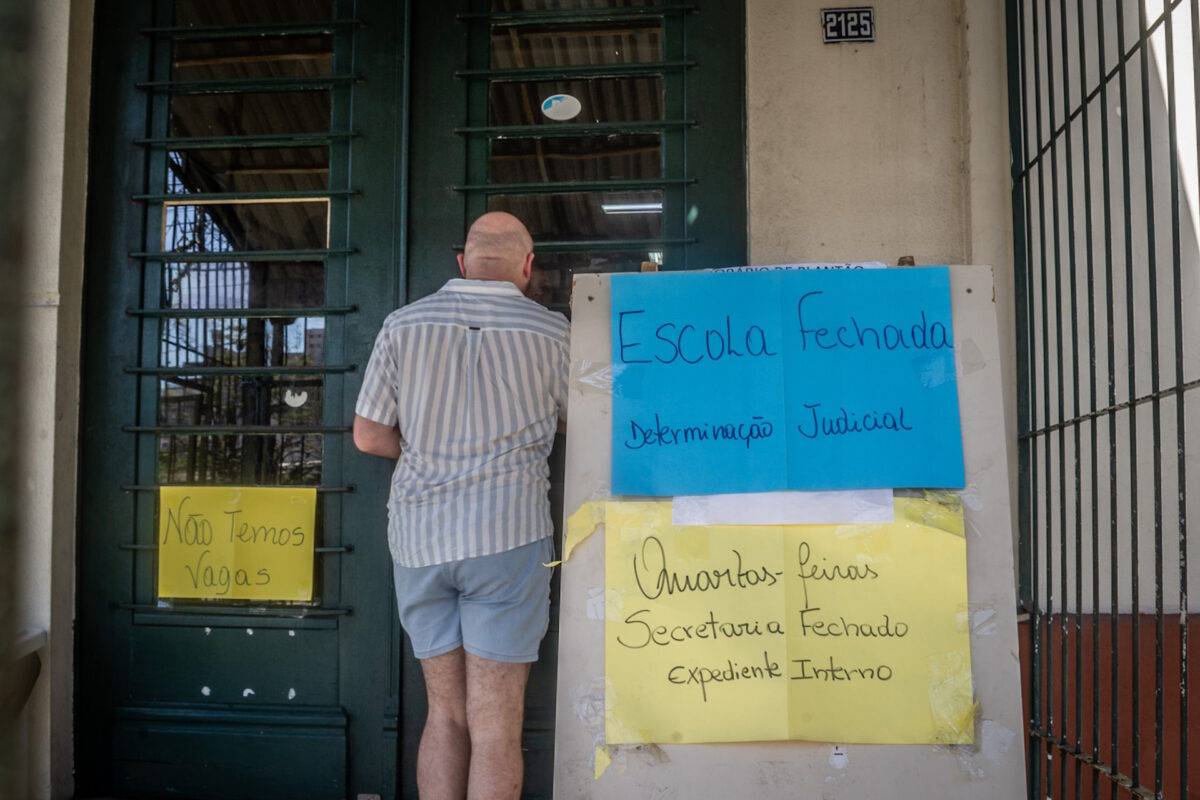 2125
HORÁRIO DE PLANTÃO
Escola Fechada
Determinação Judicial
Não Temos
Vagas
Quartas-feiras
Secretaria Fechado
Expediente Interno